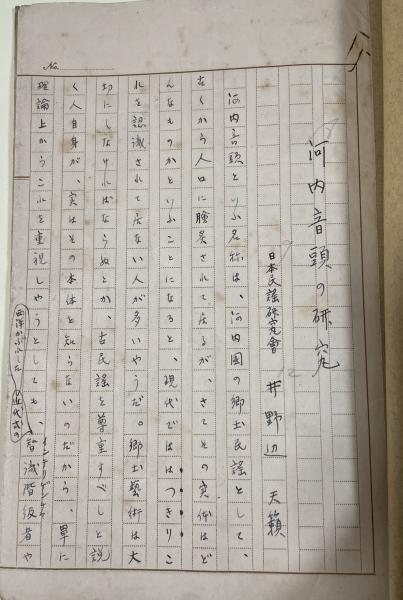 No.
河内音頭の研究
日本民謡研究會　井野辺　天籟
河内音頭といふ名称は、河内国の郷土民謡として、
古くから人口に膾炙されて居るが、さてその実体はど
んなものかといふことになると、現代でははつきりこ
れを認識されて居ない人が多いやうだ。郷土藝術は大
切にしなければならぬとか、古民謡を尊重すべしと説
く人自身が、実はその本体を知らないのだから、単に
理論上からこれを重視しやうとしても、智識階級者や
インテリゲンチャ
西洋かぶれした
近代式の